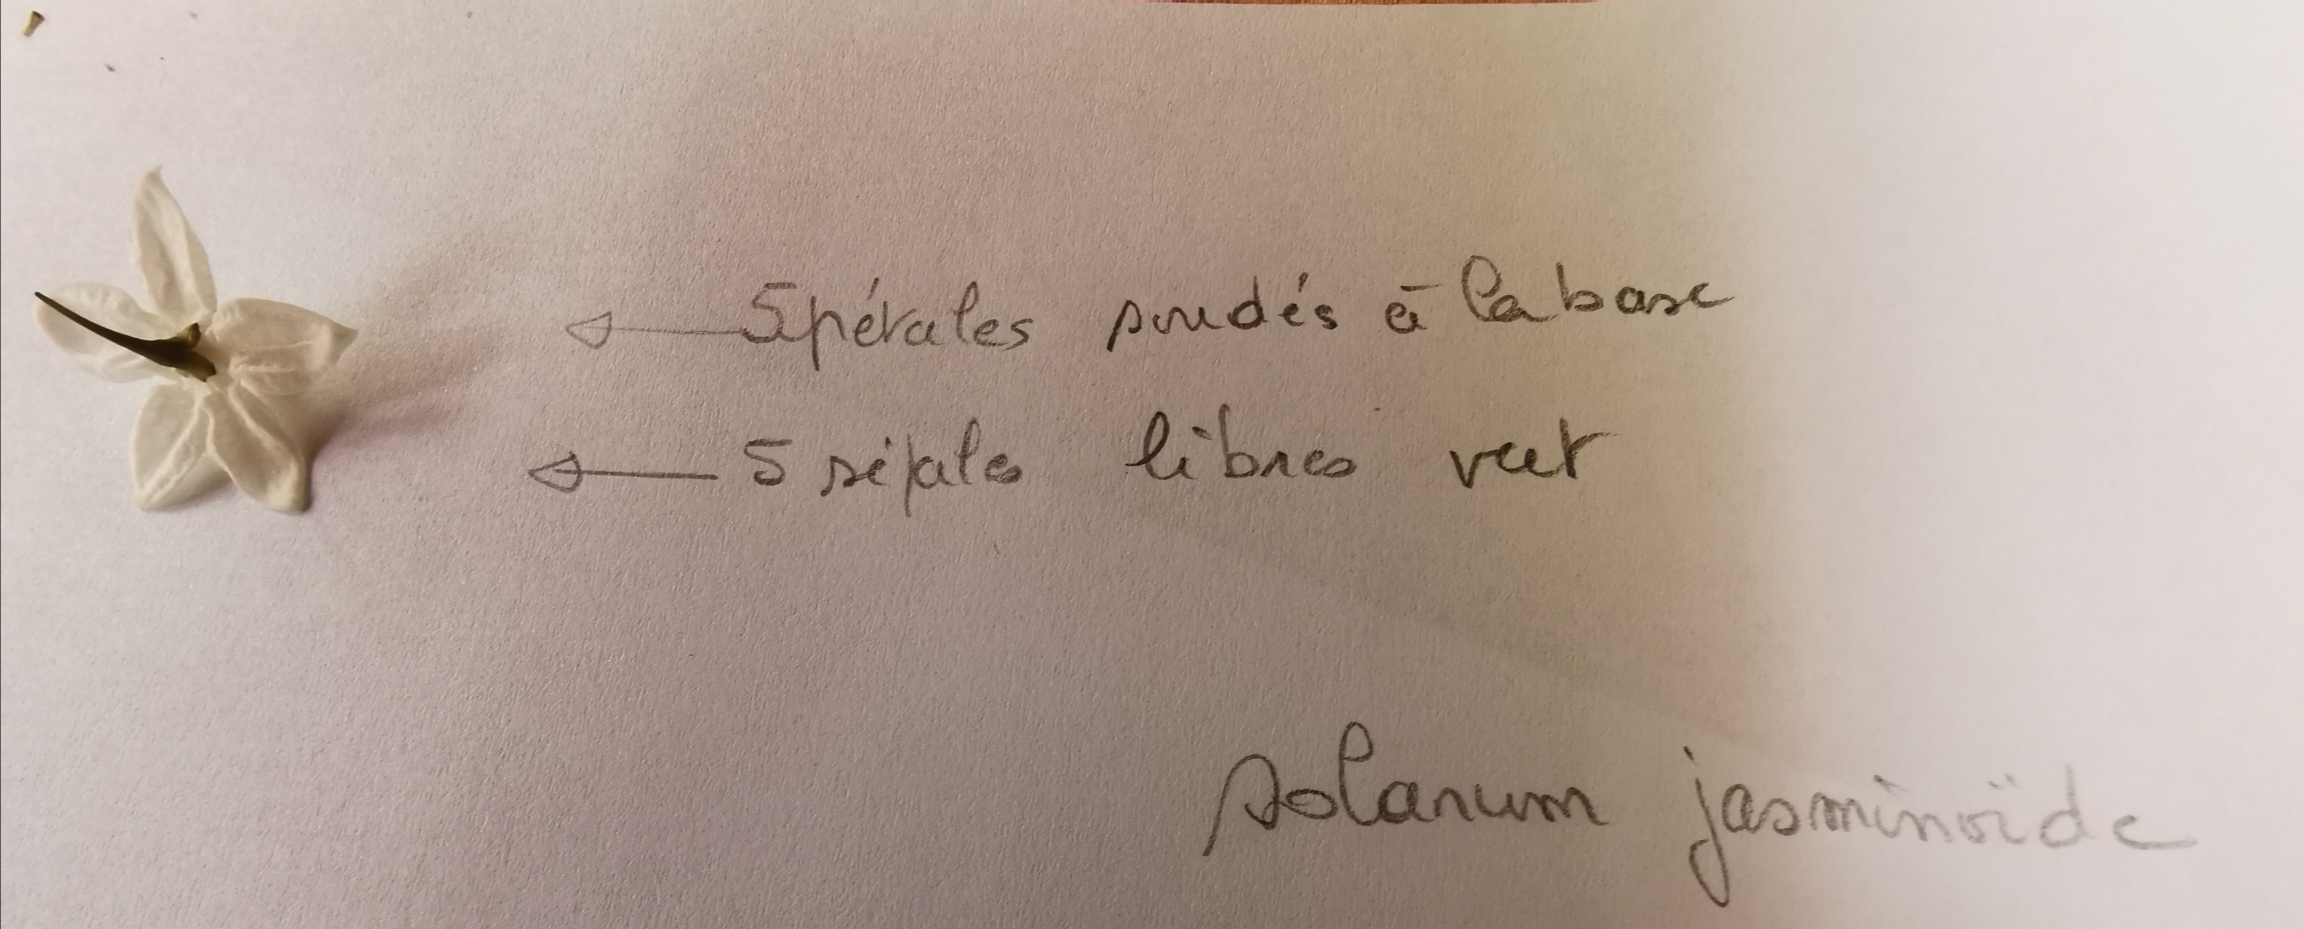 5 pétales soudés à la base
5 sépales libres vert
solanum jasminoïde